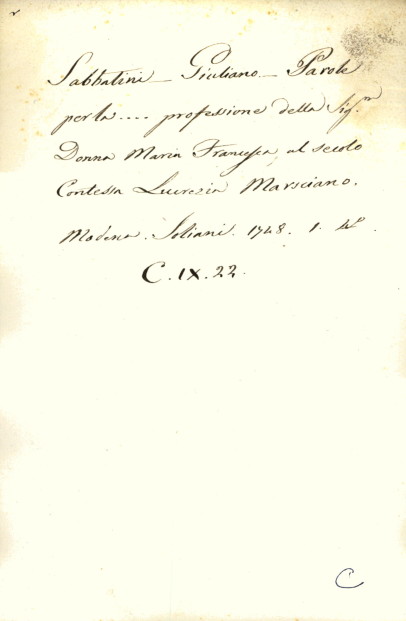 Sabbatini _ Giuliano _ Parole
per la .... professione della Sig.ra
Donna Maria Francesca, al secolo
Contessa Lucrezia Marsciano.
Modena. Soliani. 1748. 1. 4.o
C. IX. 22.
C